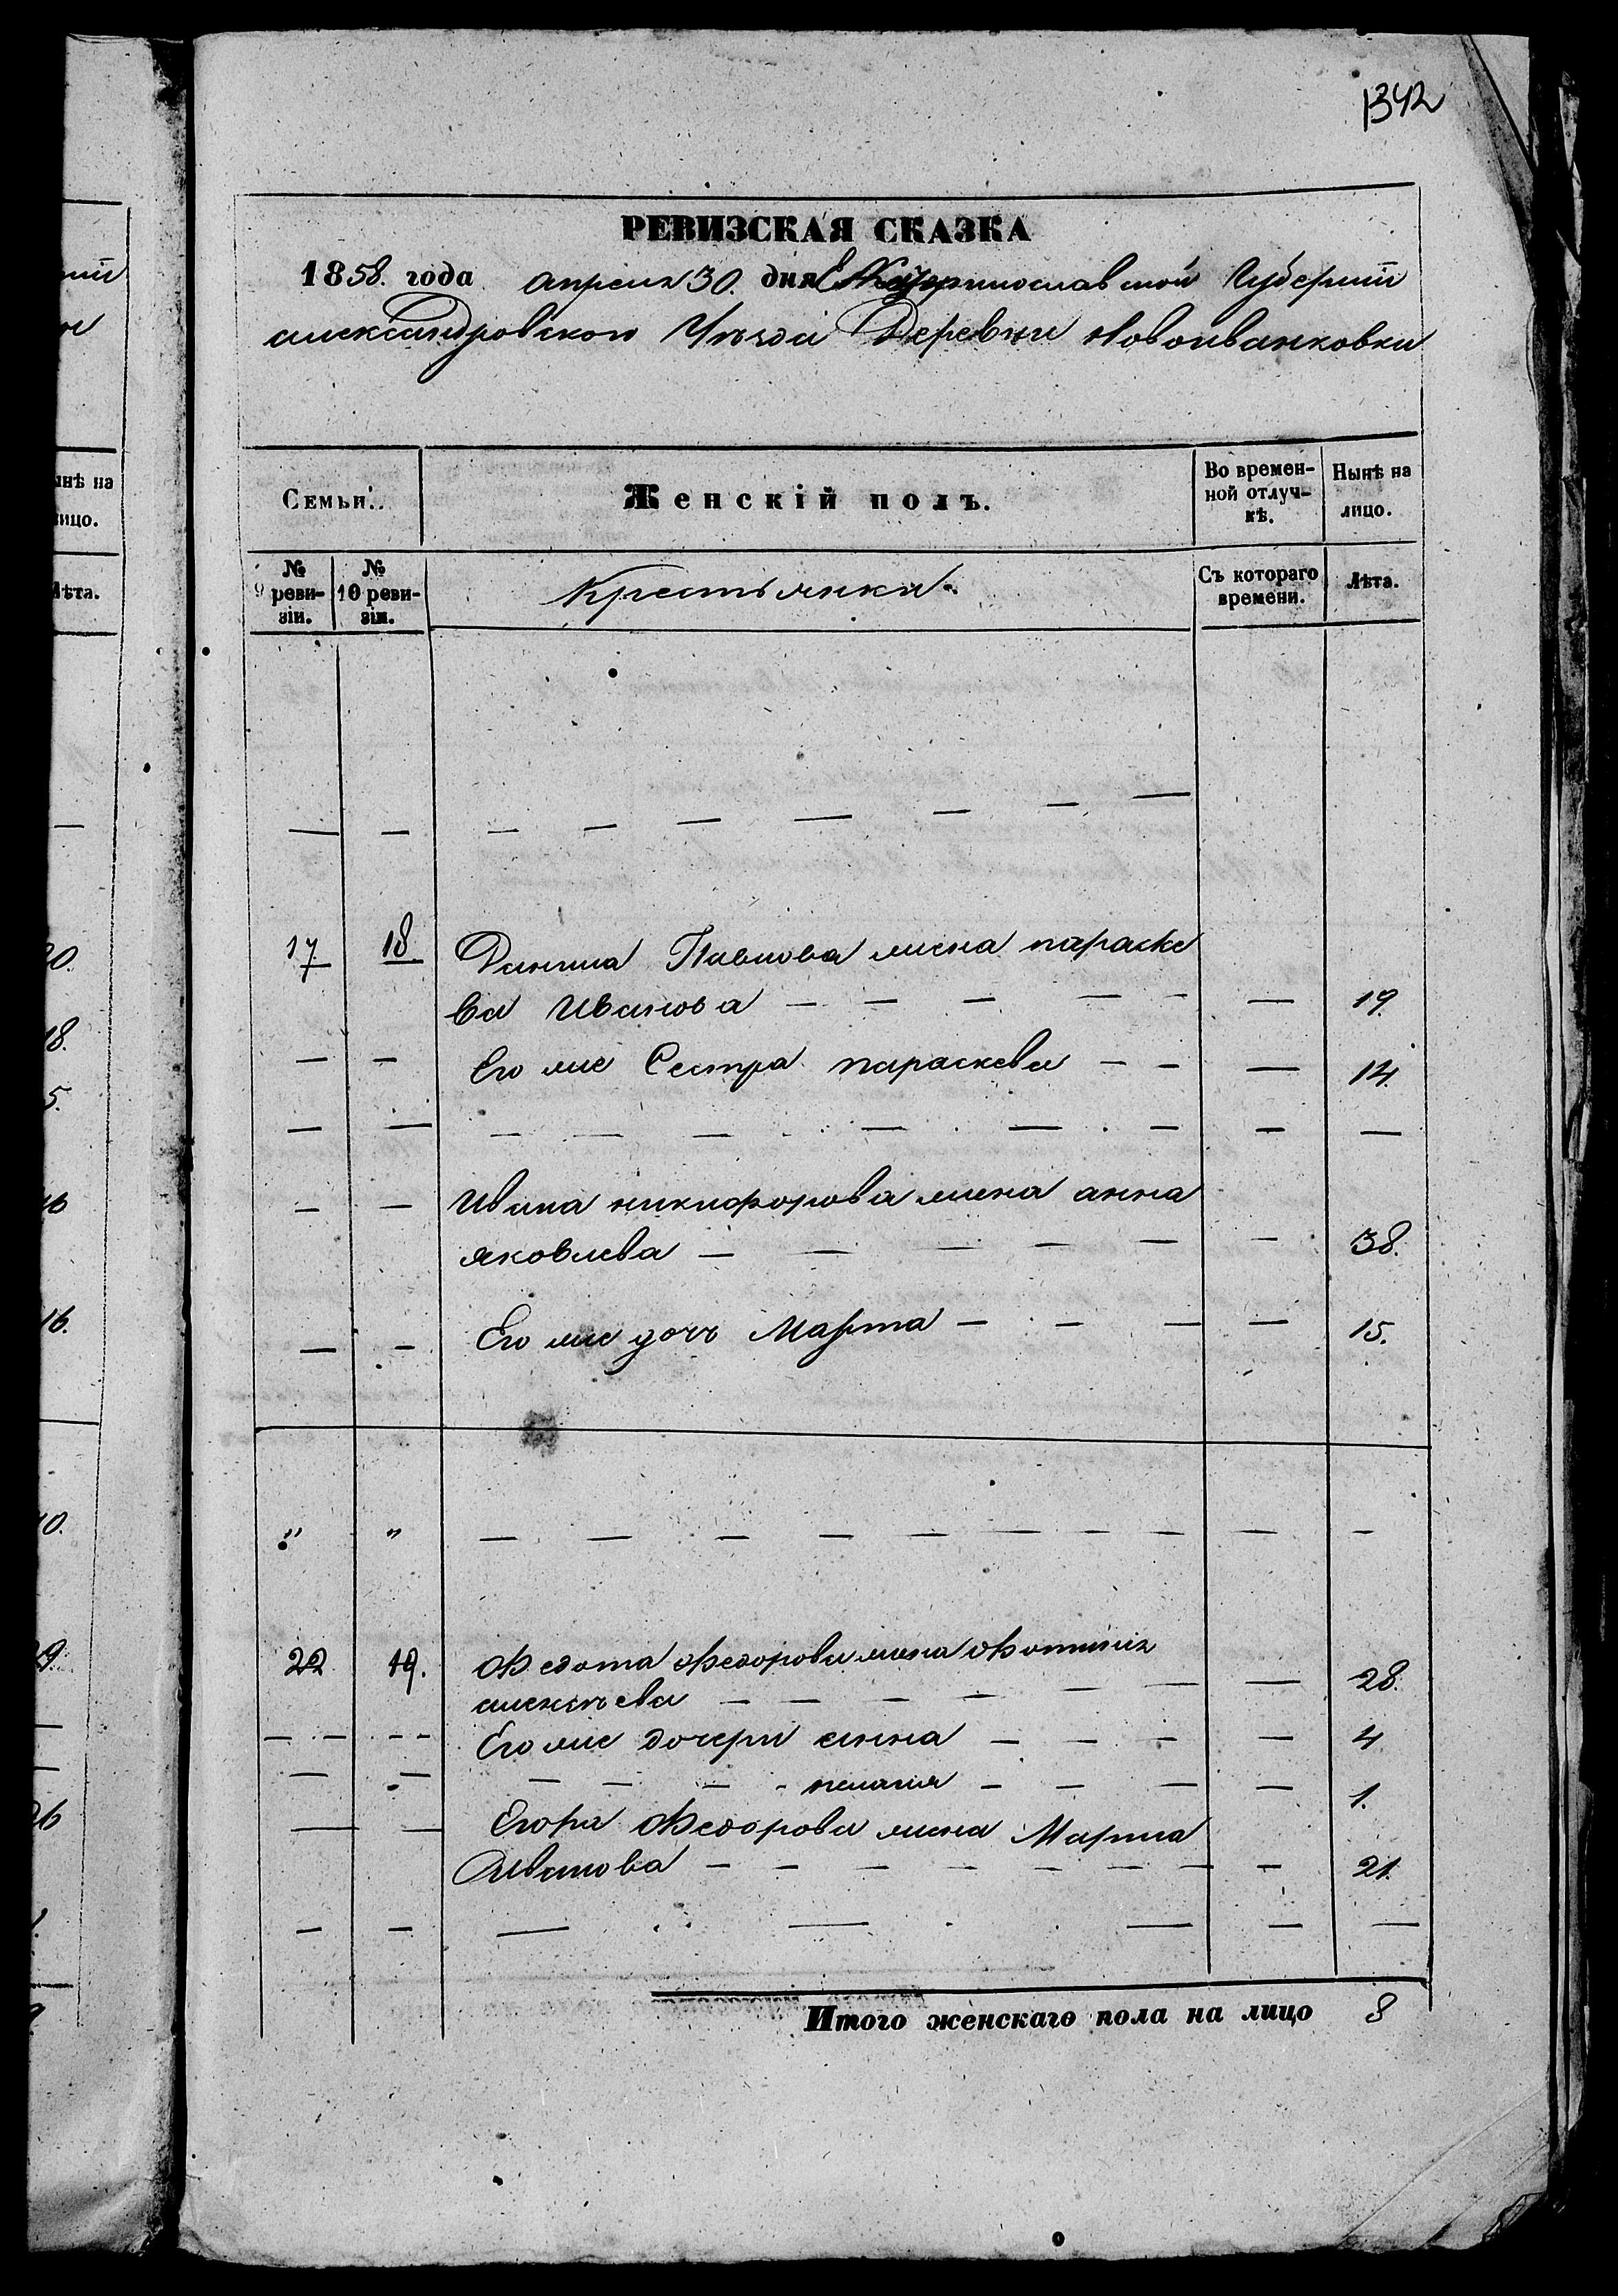 1342
РЕВИЗСКАЯ СКАЗКА
1858. года апреля 30. дня Екатеринославской Губернии
александровского Уезда Деревни Новоиванковки
Семьи.
Женскій полъ.
Во времен-
ной отлуч-
кѣ.
Нынѣ на
лицо.
№
9 реви-
зіи.
№
10 реви-
зіи.
Крестьянки.
Съ котораго
времени.
Лѣта.
17 18. Данила Павлова жена параске
ва Иванова — — — — — — 19.
— — Его же Сестра параскева — — — 14.
— — Ивана никифорова жена анна
яковлева — — — — — — 38.
— — Его же дочь Марфа — — — — 15.
" " — — — — — — — — — —
22 19. Федота Федорова жена Фотиния
алексѣева — — — — — — 28.
Его же дочери анна — — — — 4
— — — пелагия — — — — 1.
Егора Федорова жена Марина
Иванова — — — — — — — — 21.
Итого женскаго пола на лицо 8
ынѣ на
лицо.
Лѣта.